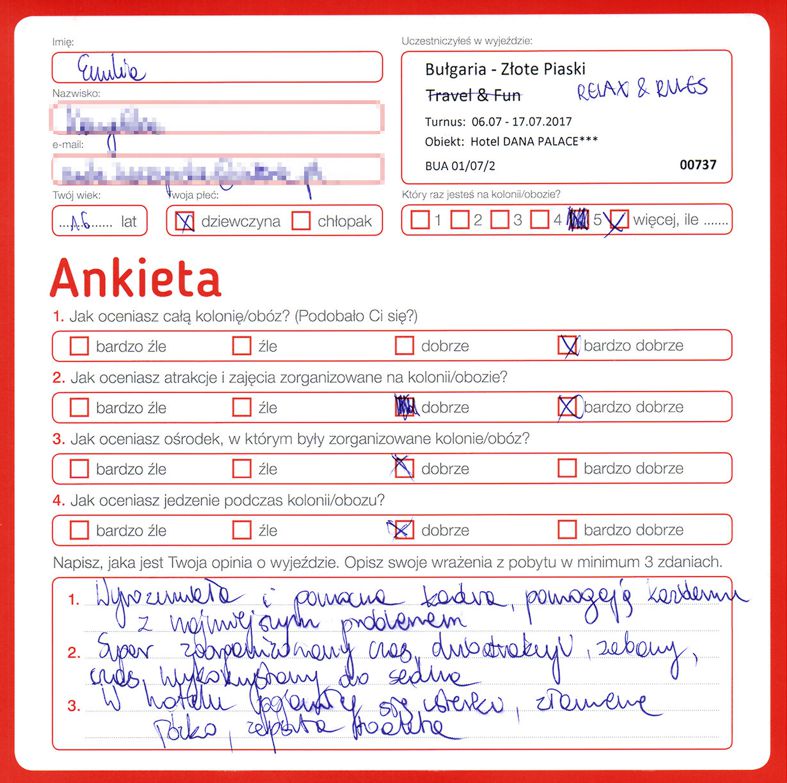 Imię:
Emilia
Nazwisko:
e-mail:
Twój wiek:
16 lat
Twoja płeć:
dziewczyna chłopak
Uczestniczyłeś w wyjeździe:
Bułgaria - Złote Piaski
Travel & Fun RELAX & RULES
Turnus: 06.07 - 17.07.2017
Obiekt: Hotel DANA PALACE***
BUA 01/07/2 00737
Który raz jesteś na kolonii/obozie?
1 2 3 4 5 więcej, ile .......
Ankieta
1. Jak oceniasz całą kolonię/obóz? (Podobało Ci się?)
bardzo źle źle dobrze bardzo dobrze
2. Jak oceniasz atrakcje i zajęcia zorganizowane na kolonii/obozie?
bardzo źle źle dobrze bardzo dobrze
3. Jak oceniasz ośrodek, w którym były zorganizowane kolonie/obóz?
bardzo źle źle dobrze bardzo dobrze
4. Jak oceniasz jedzenie podczas kolonii/obozu?
bardzo źle źle dobrze bardzo dobrze
Napisz, jaka jest Twoja opinia o wyjeździe. Opisz swoje wrażenia z pobytu w minimum 3 zdaniach.
1. Wyrozumiała i pomocna kadra, pomagają każdemu
z najmniejszym problemem
2. Super zorganizowany czas, dużo atrakcji, zabawy,
czas wykorzystany do sedna
3. W hotelu pojawiły się usterki, złamane
łóżko, zapchta toaleta